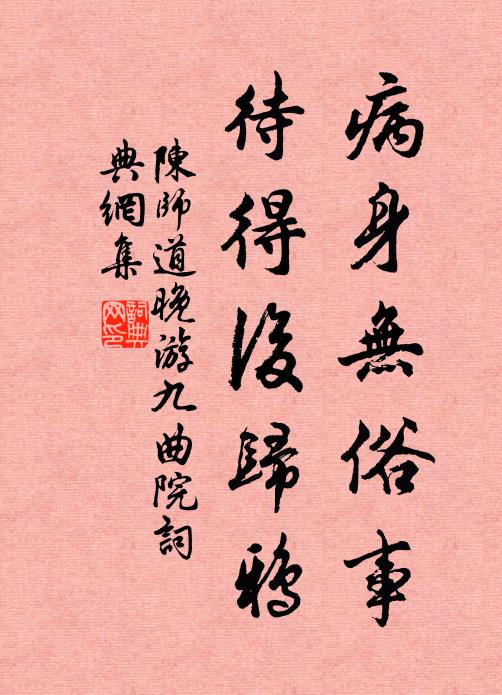 病身無俗事
待得後歸鴉
陳師道晚游九曲院詞
典網集
詞典網印